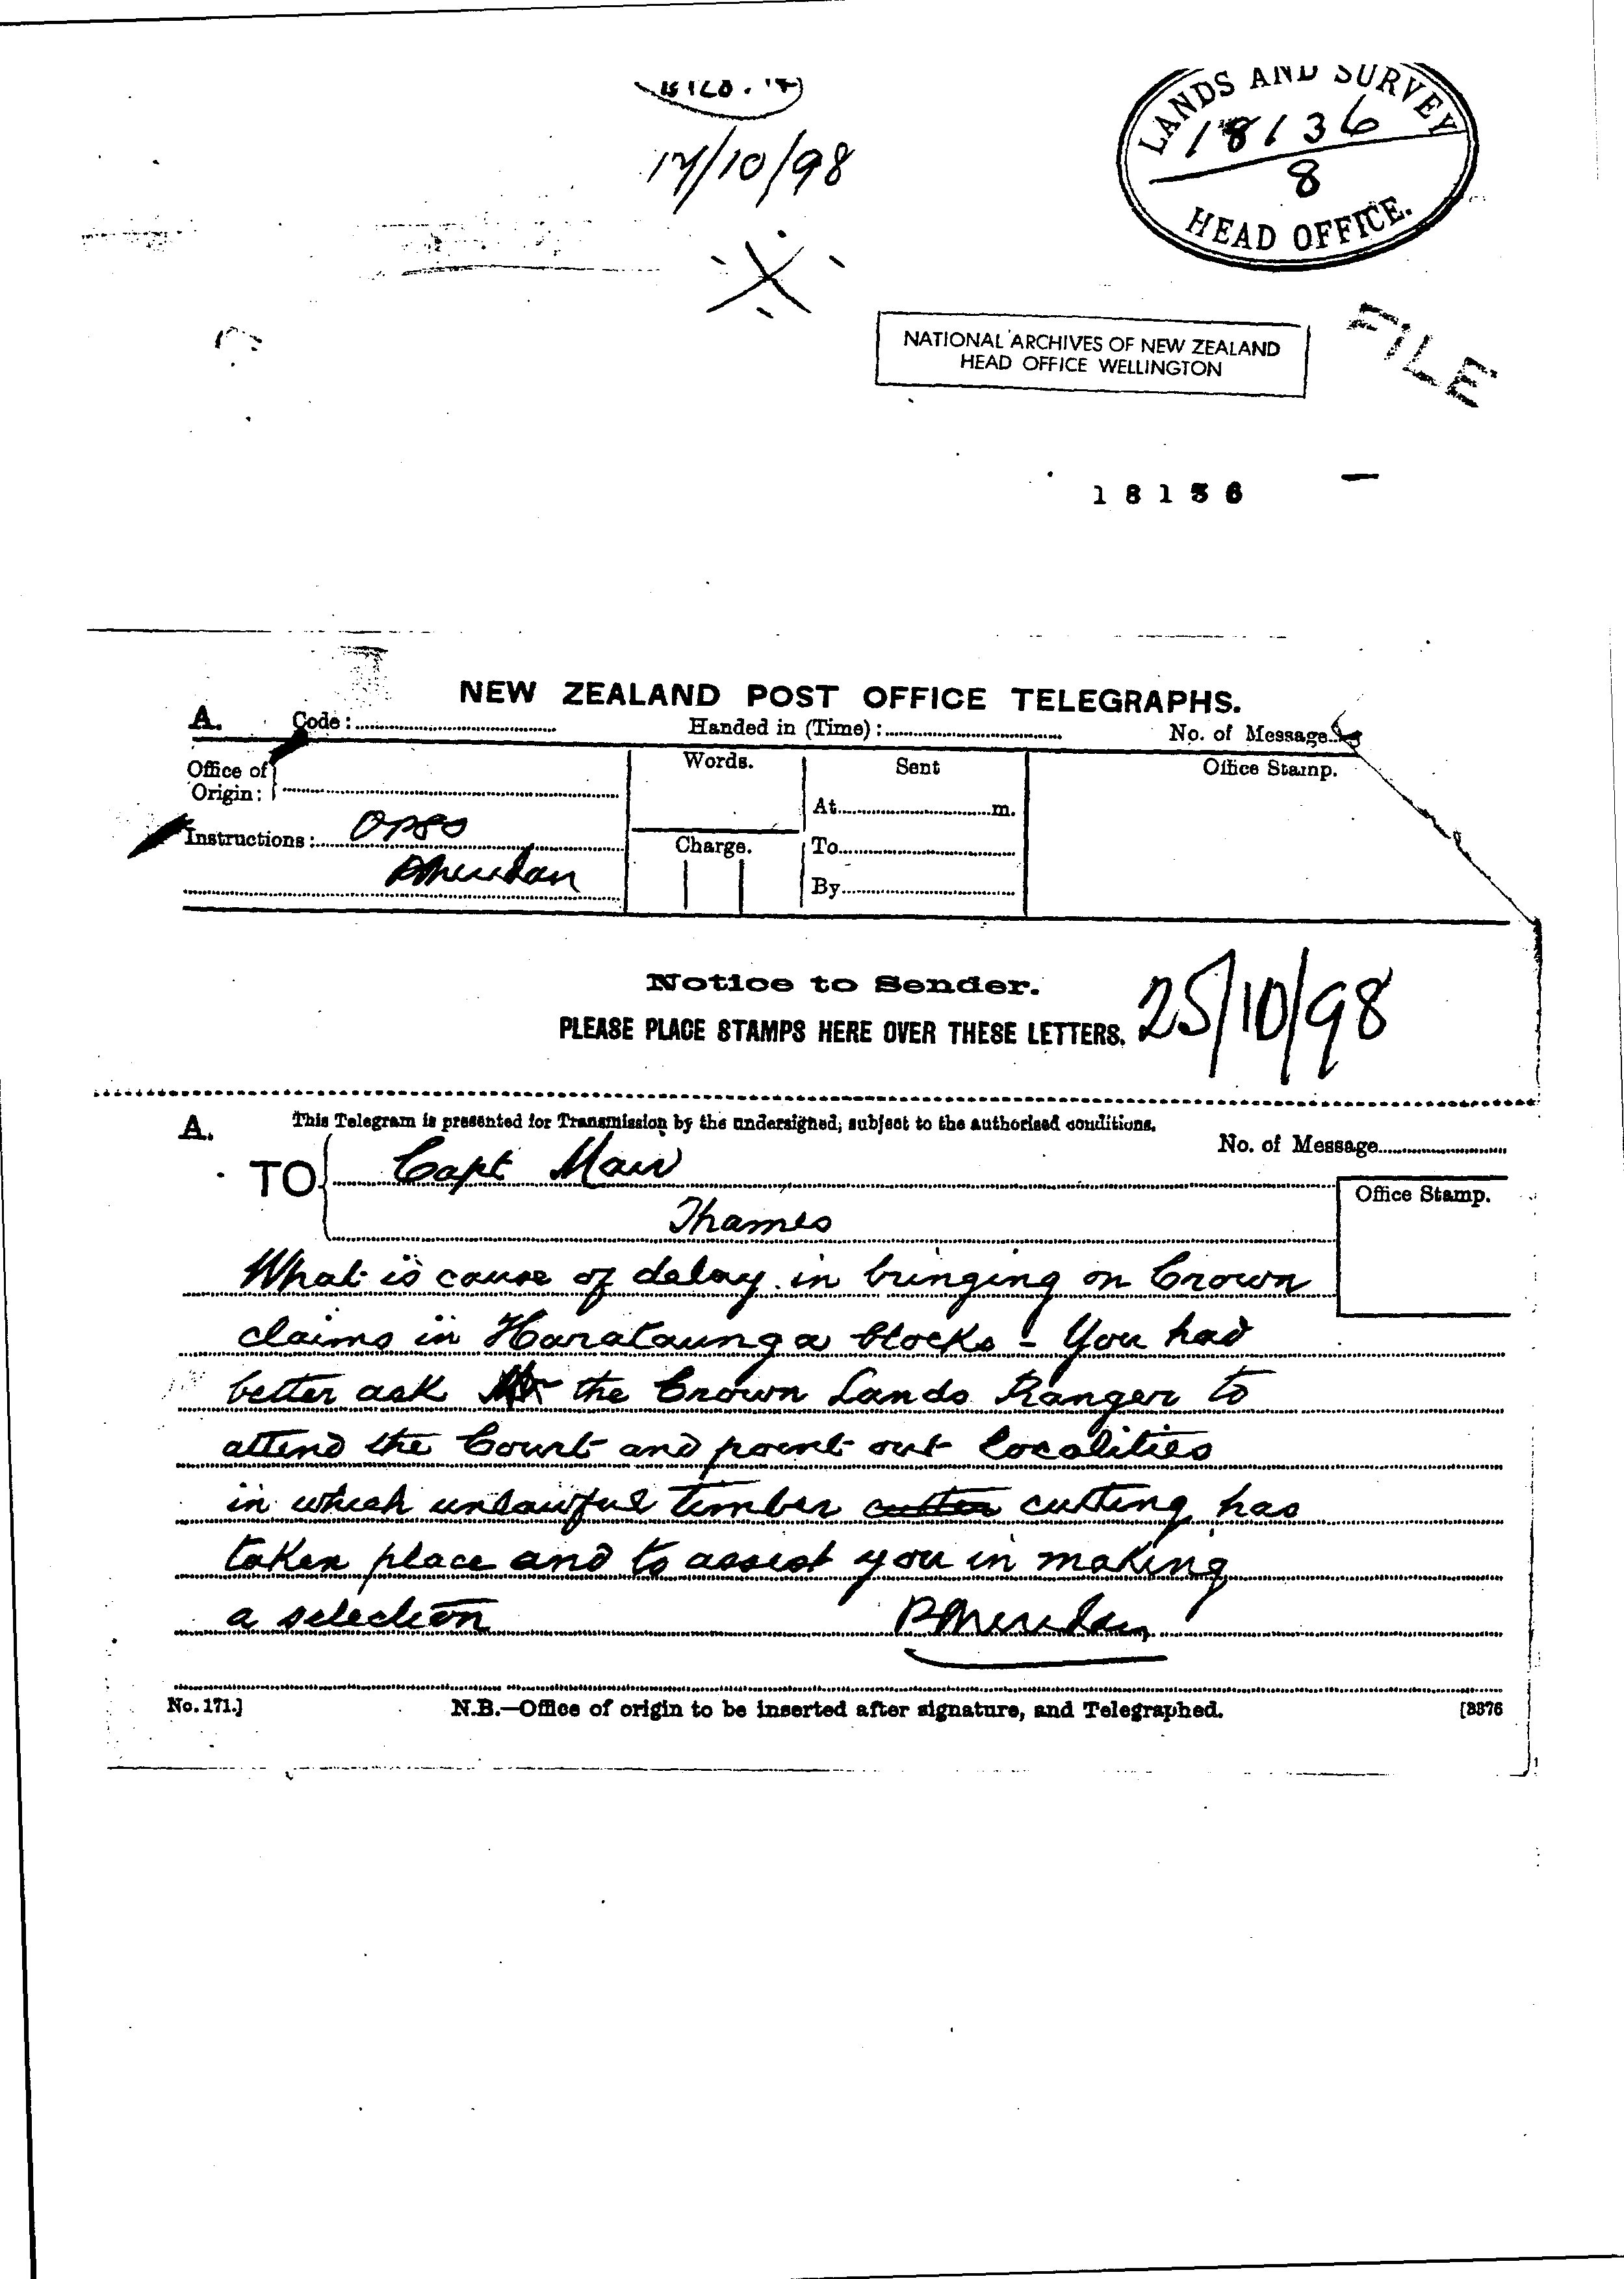 LANDS AND SURVEY
18136
8
HEAD OFFICE.
17/10/98
NATIONAL ARCHIVES OF NEW ZEALAND
HEAD OFFICE WELLINGTON
FILE
18136
NEW ZEALAND POST OFFICE TELEGRAPHS.
A. Code: Handed in (Time): No. of Message
Office of Origin:
Words.
Sent
Office Stamp.
At m.
Instructions: OPSO
Charge.
To
PSheridan
By
Notice to Sender.
PLEASE PLACE STAMPS HERE OVER THESE LETTERS.
25/10/98
A. This Telegram is presented for Transmission by the undersigned, subject to the authorised conditions.
No. of Message
TO Capt Mair
Office Stamp.
Thames
What is cause of delay in bringing on Crown
claims in Harataunga blocks - You had
better ask the Crown Lands Ranger to
attend the Court and point out localities
in which unlawful timber cutting has
taken place and to assist you in making
a selection
PSheridan
No. 171.] N.B.—Office of origin to be inserted after signature, and Telegraphed. [3376